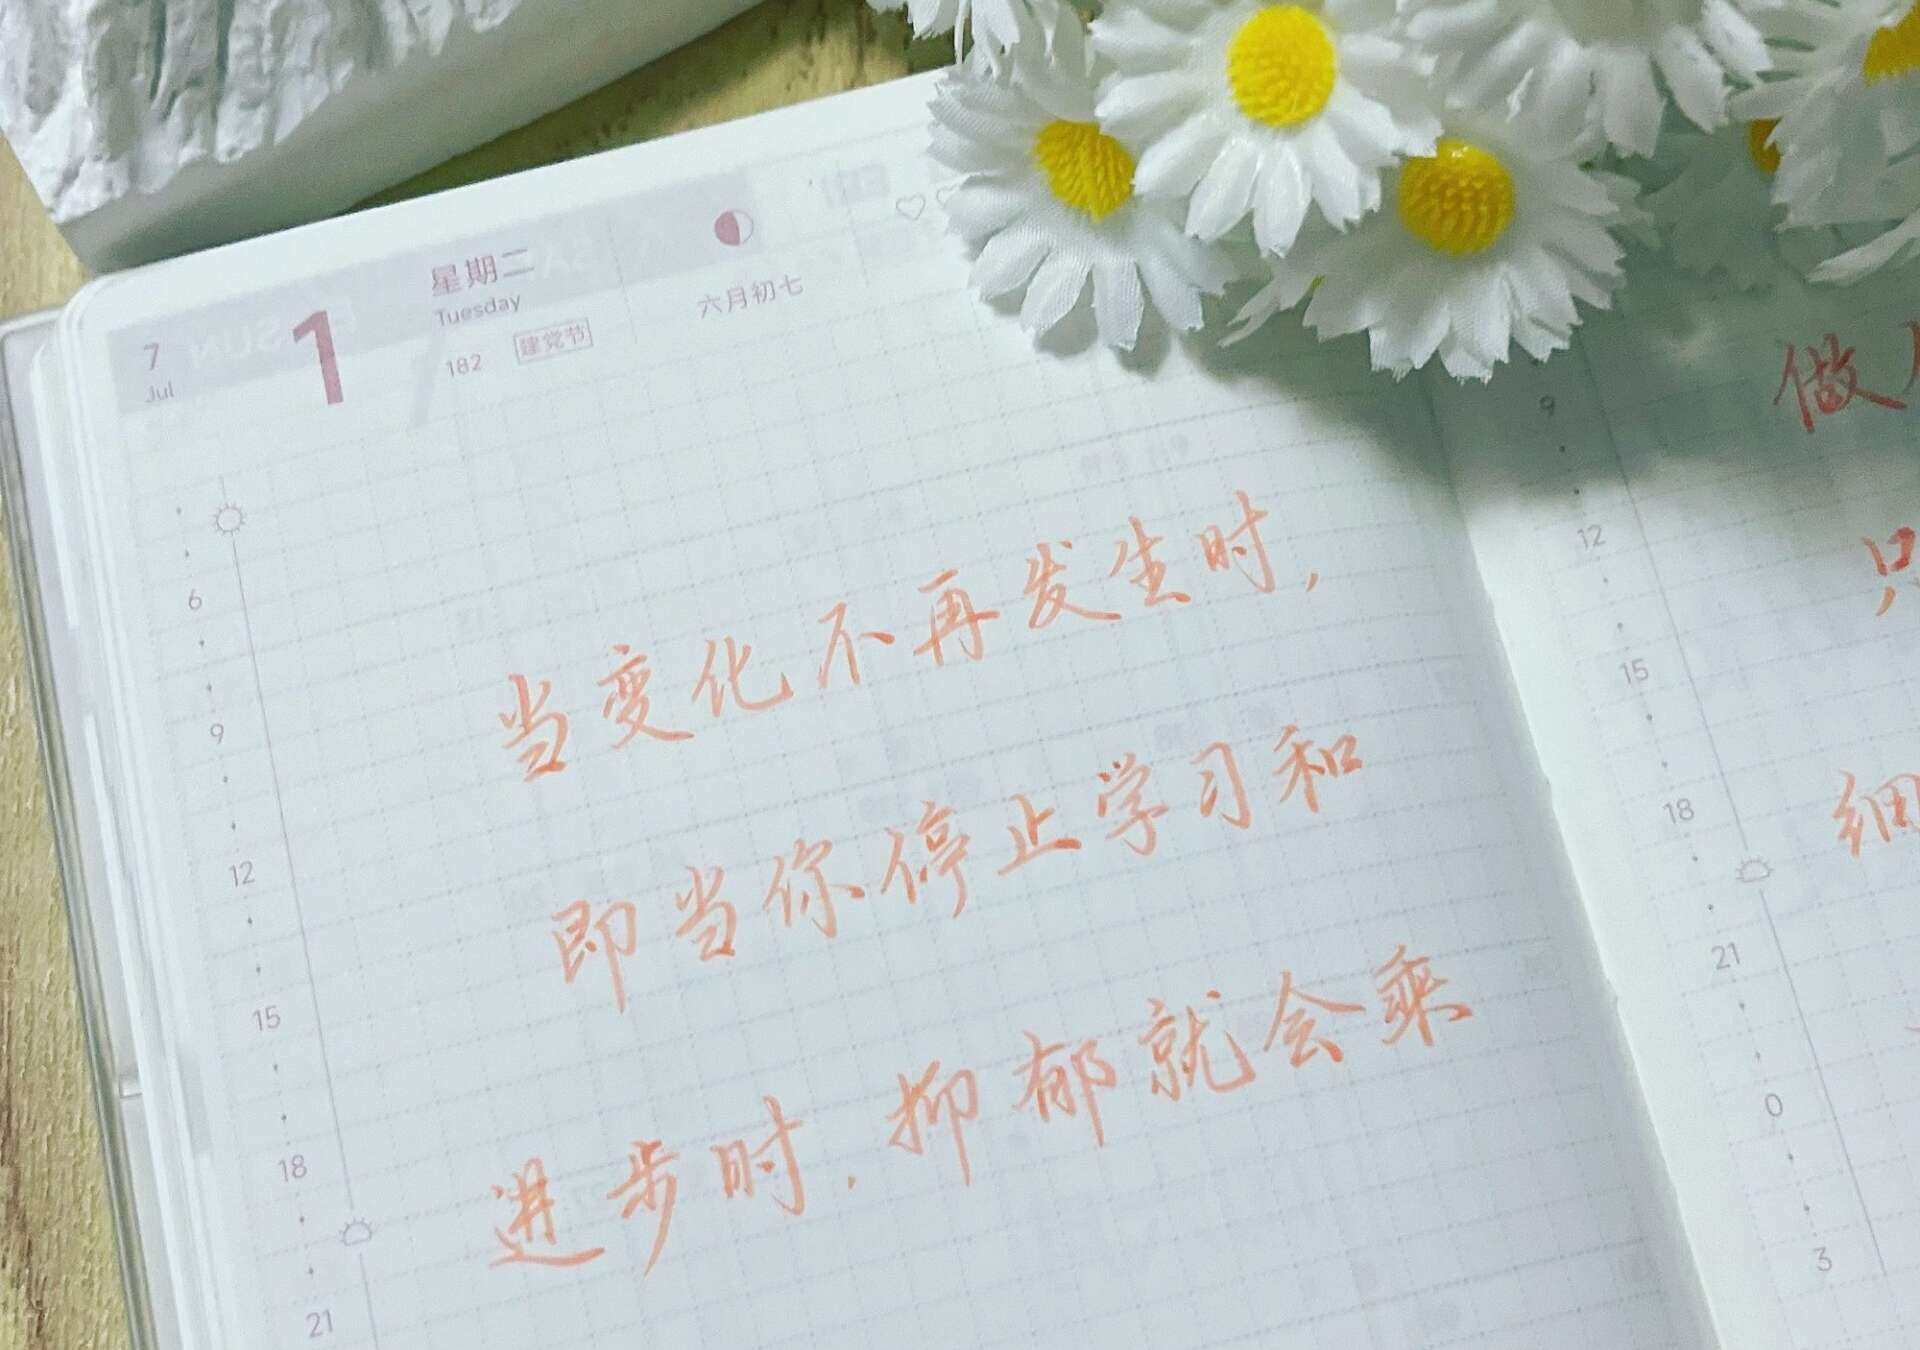 7
Jul
1
星期二
Tuesday
182
建党节
六月初七
6
9
12
15
18
21
当变化不再发生时，
即当你停止学习和
进步时，抑郁就会乘
9
12
15
18
21
0
3
做
只
细